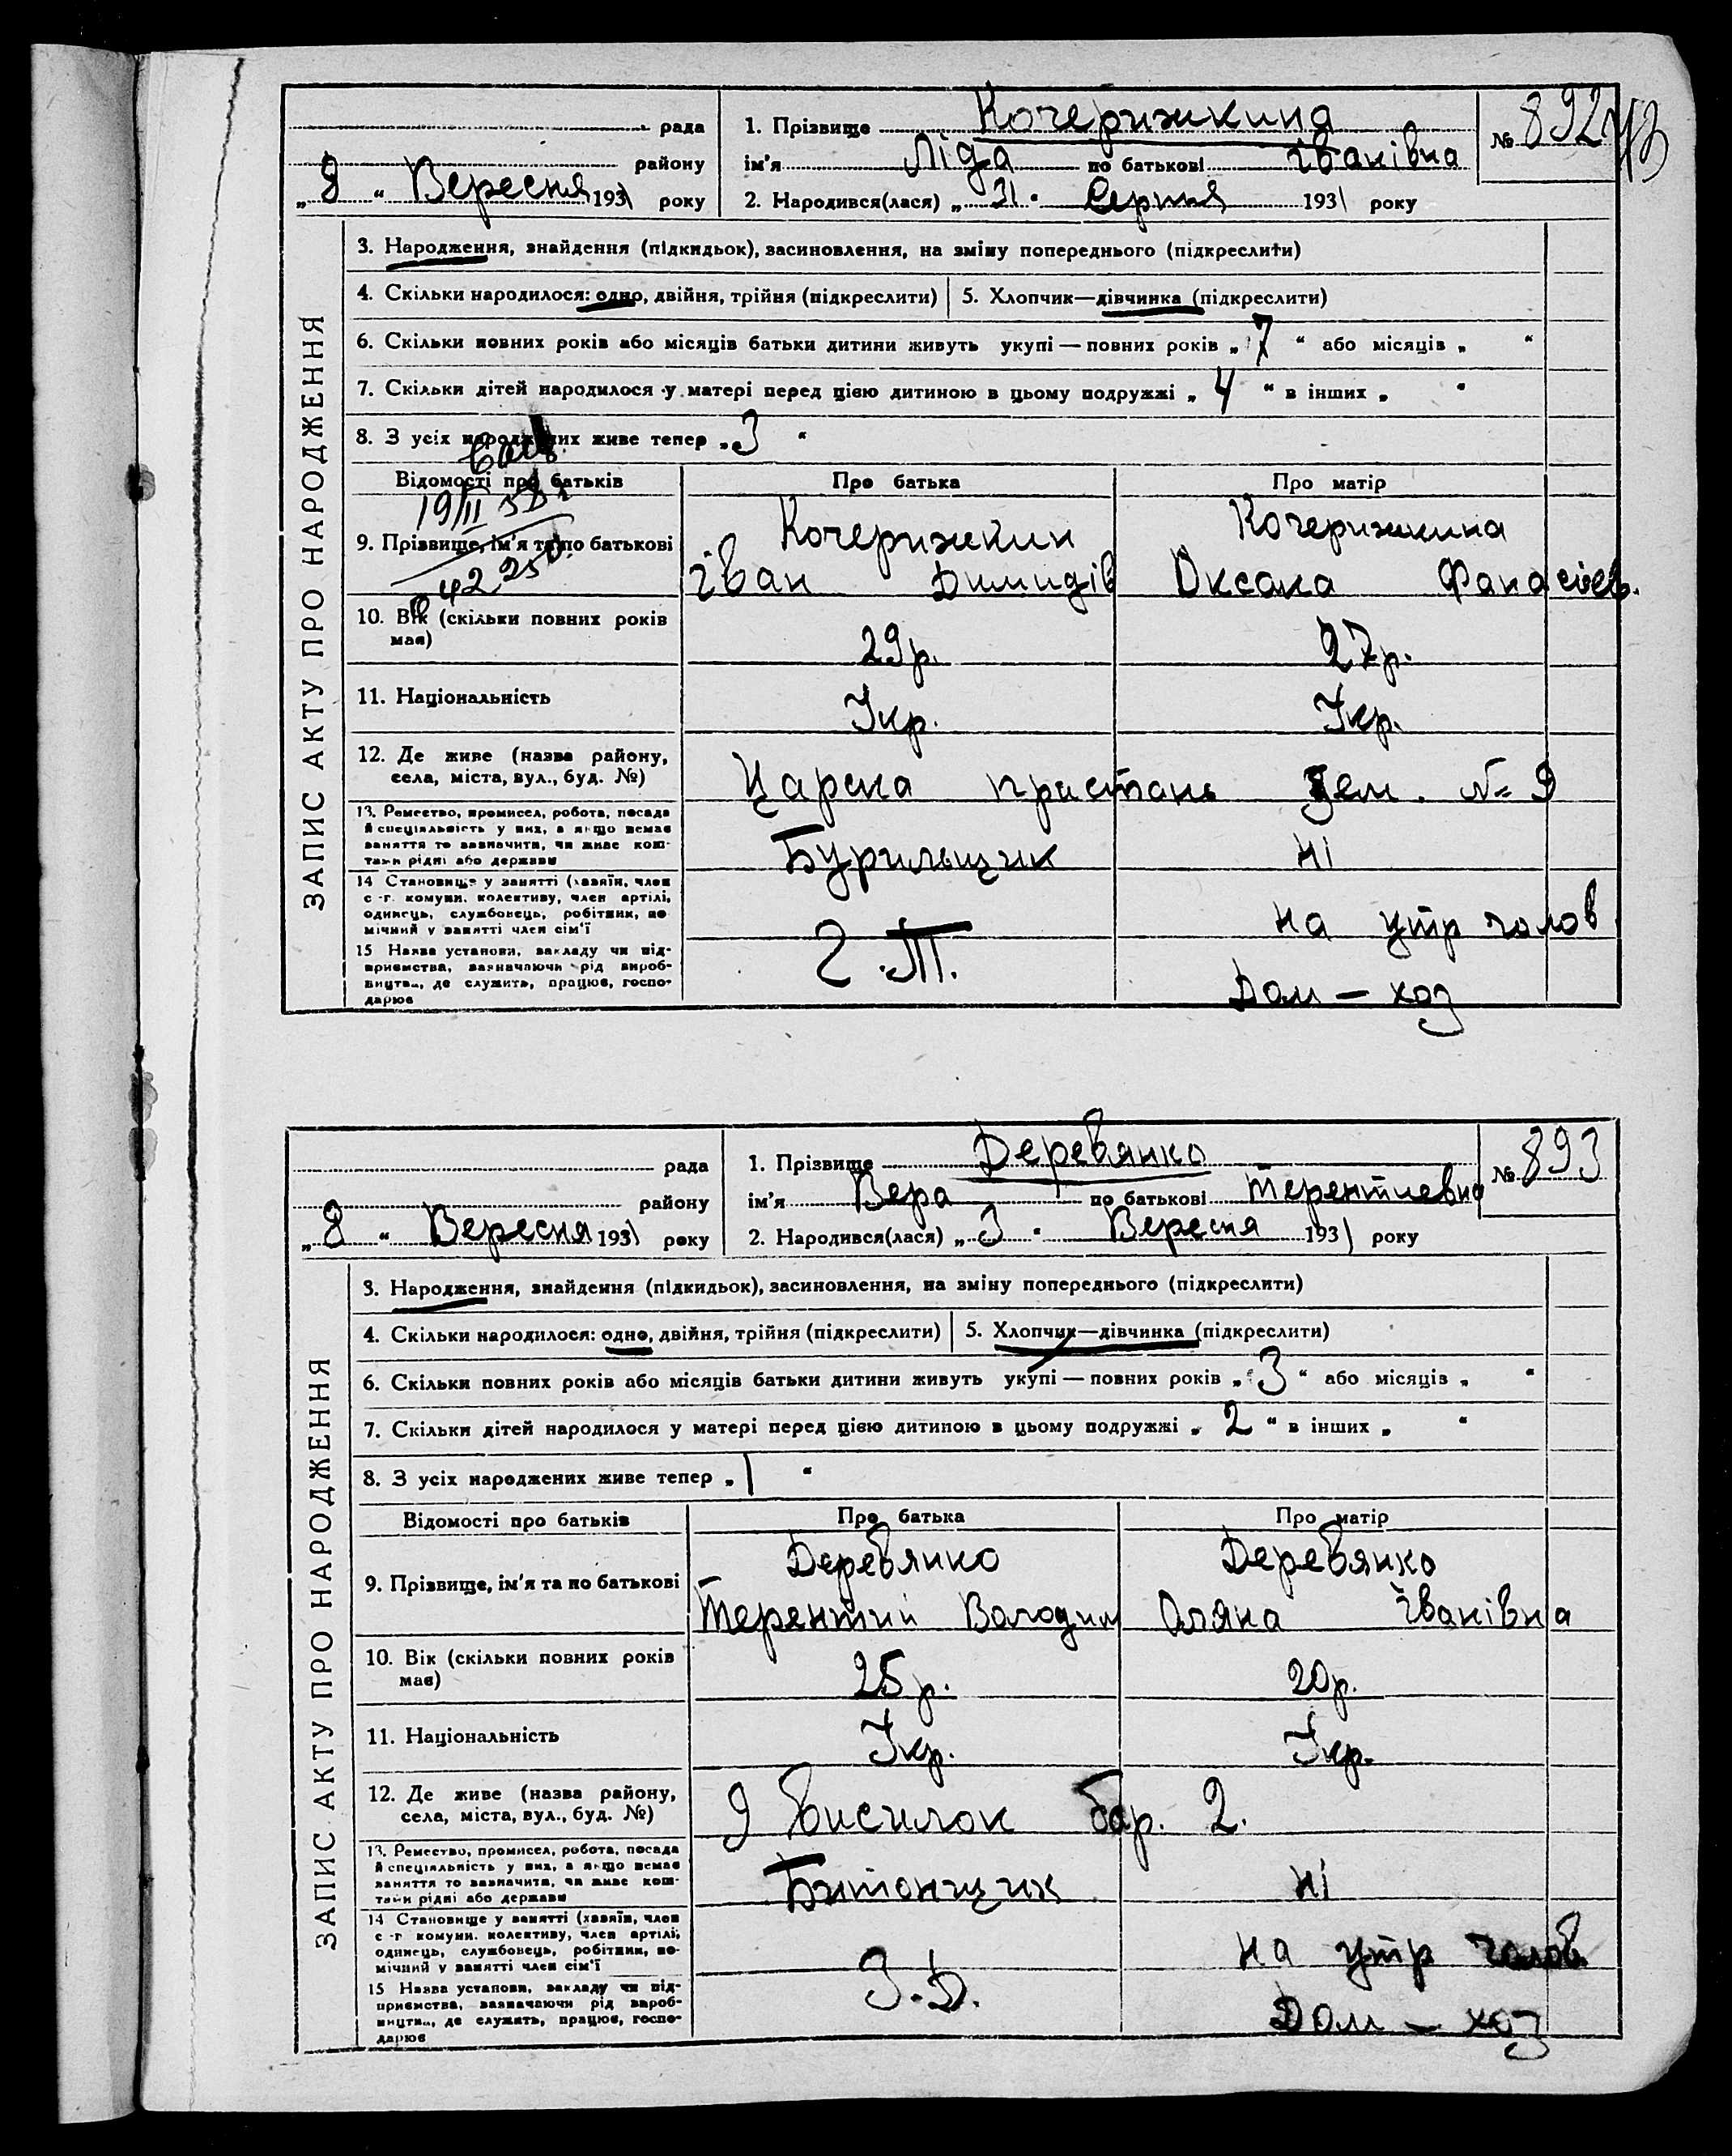 рада
району
„ 8 “ Вересня 1931 року
1. Прізвище Кочерижкина
ім'я Ліда по батькові Іванівна
2. Народився(лася) „ 31 “ Серпня 1931 року
№ 892
ЗАПИС АКТУ ПРО НАРОДЖЕННЯ
3. Народження, знайдення (підкидьок), засиновлення, на зміну попереднього (підкреслити)
4. Скільки народилося: одно, двійня, трійня (підкреслити)
5. Хлопчик—дівчинка (підкреслити)
6. Скільки повних років або місяців батьки дитини живуть укупі — повних років „ 7 “ або місяців „ “
7. Скільки дітей народилося у матері перед цією дитиною в цьому подружжі „ 4 “ в інших „ “
8. З усіх народжених живе тепер „ 3 “
Відомості про батьків
Про батька
Про матір
19/II
9. Прізвище, ім'я та по батькові
Кочерижкин
Іван Димидів
Кочерижкина
Оксана Фанасієв.
10. Вік (скільки повних років має)
29р.
27р.
11. Національність
Укр.
Укр.
12. Де живе (назва району,
села, міста, вул., буд. №)
Царска пристань Зем. № 9
13. Ремество, промисел, робота, посада
й спеціяльність у них, а якщо немає
заняття то зазначити, чи живе кош-
тами рідні або держави
Бурильщик
ні
14 Становище у занятті (хазяїн, член
с.-г. комуни, колективу, член артілі,
одинець, службовець, робітник, по-
мічний у занятті член сім'ї
на утр чолов
15 Назва установи, закладу чи під-
приємства, зазначаючи рід вироб-
ництва, де служить, працює, госпо-
дарює
Г.П.
Дом — хоз
рада
району
„ 8 “ Вересня 1931 року
1. Прізвище Деревянко
ім'я Вера по батькові Терентиевна
2. Народився(лася) „ 3 “ Вересня 1931 року
№ 893
ЗАПИС АКТУ ПРО НАРОДЖЕННЯ
3. Народження, знайдення (підкидьок), засиновлення, на зміну попереднього (підкреслити)
4. Скільки народилося: одно, двійня, трійня (підкреслити)
5. Хлопчик—дівчинка (підкреслити)
6. Скільки повних років або місяців батьки дитини живуть укупі — повних років „ 3 “ або місяців „ “
7. Скільки дітей народилося у матері перед цією дитиною в цьому подружжі „ 2 “ в інших „ “
8. З усіх народжених живе тепер „ 1 “
Відомості про батьків
Про батька
Про матір
9. Прізвище, ім'я та по батькові
Деревянко
Терентий Володим
Деревянко
Оляна Іванівна
10. Вік (скільки повних років має)
25р.
20р.
11. Національність
Укр.
Укр.
12. Де живе (назва району,
села, міста, вул., буд. №)
9 висилок бар. 2.
13. Ремество, промисел, робота, посада
й спеціяльність у них, а якщо немає
заняття то зазначити, чи живе кош-
тами рідні або держави
Битонщик
ні
14 Становище у занятті (хазяїн, член
с.-г. комуни, колективу, член артілі,
одинець, службовець, робітник, по-
мічний у занятті член сім'ї
на утр чолов
15 Назва установи, закладу чи під-
приємства, зазначаючи рід вироб-
ництва, де служить, працює, госпо-
дарює
З.Д.
Дом — хоз